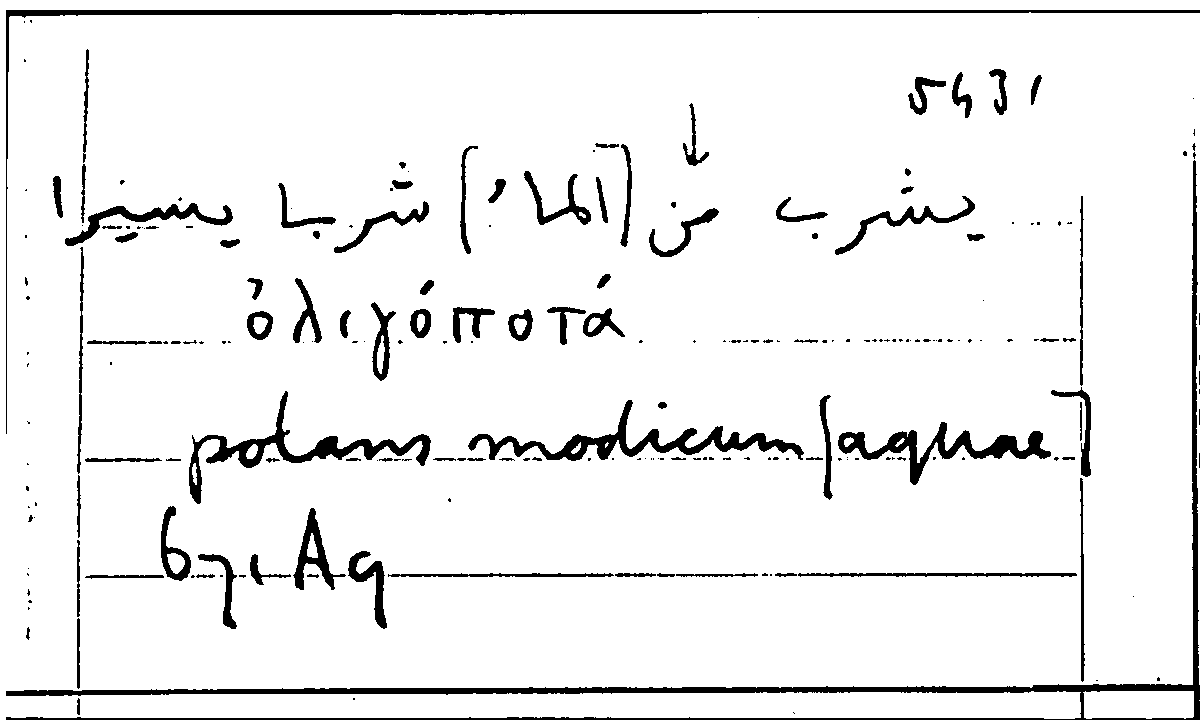 5431
يشرب من [الماء] شربا يسيرا
ὀλιγόποτά
potans modicum [aquae]
671 A9